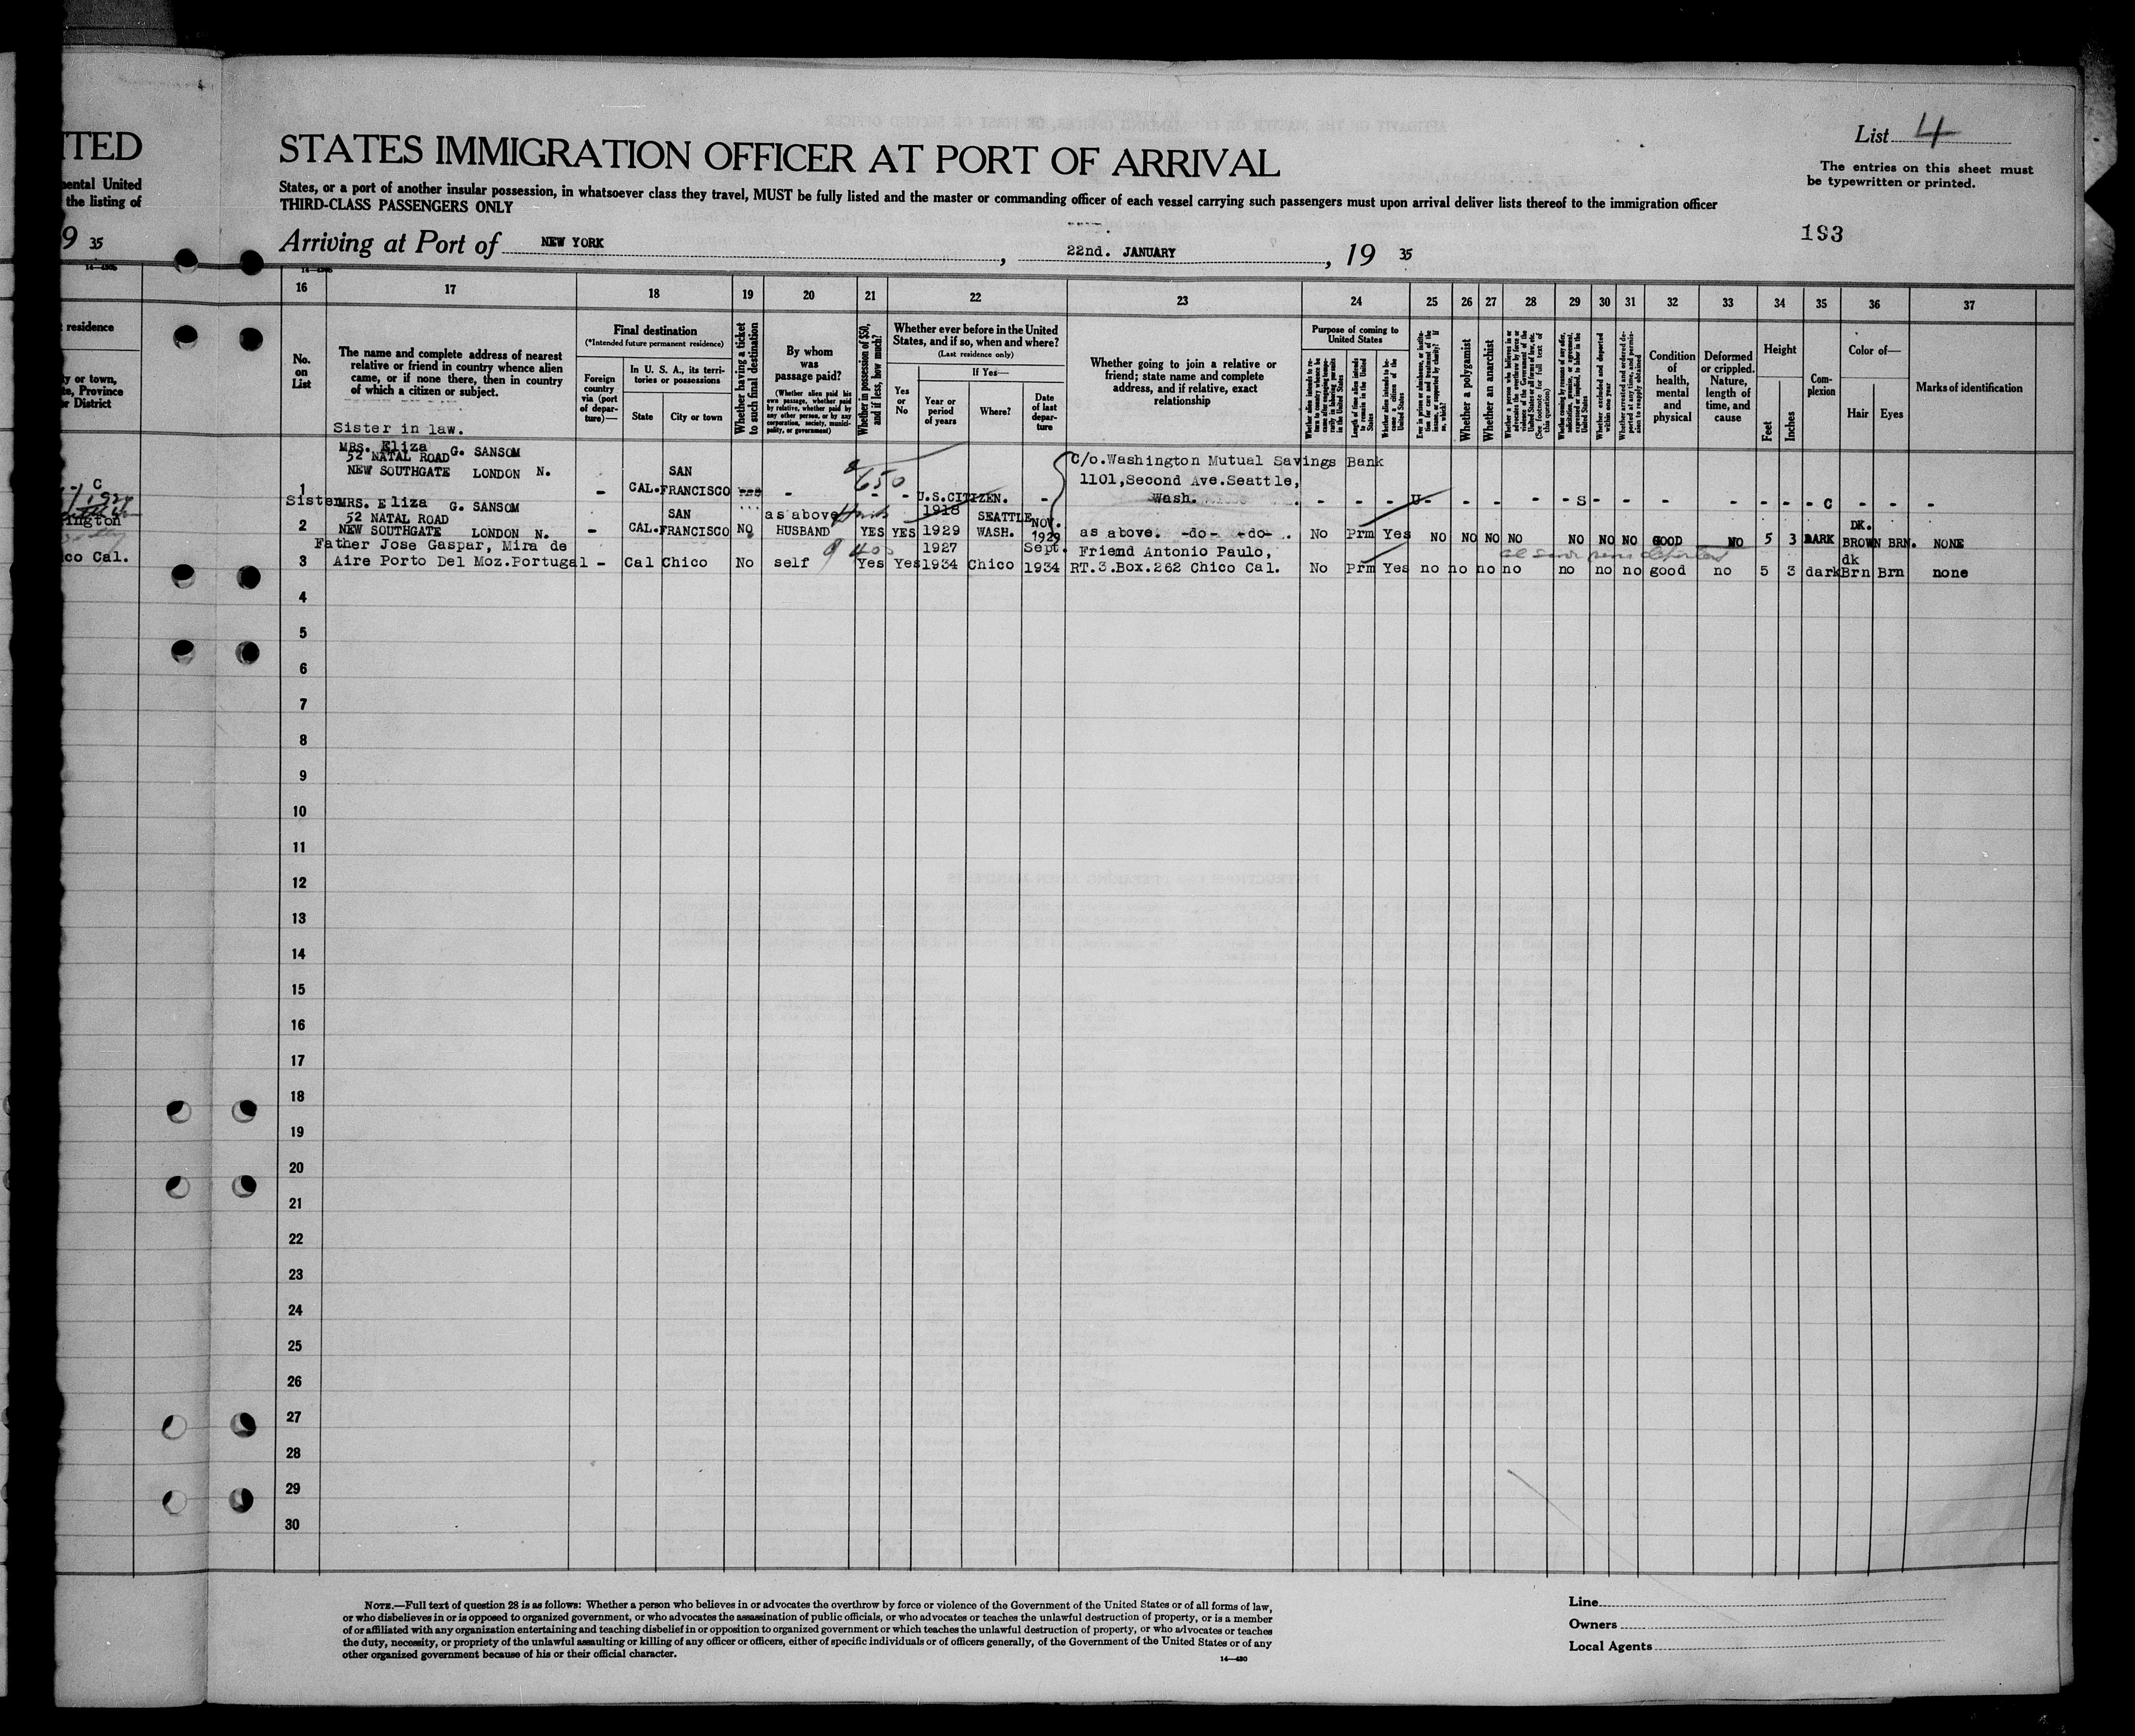 ITED
mental United
the listing of
9 35
14—430b
residence
ty or town,
te, Province
or District
C
ington
ico Cal.
List 4
STATES IMMIGRATION OFFICER AT PORT OF ARRIVAL
The entries on this sheet must
be typewritten or printed.
States, or a port of another insular possession, in whatsoever class they travel, MUST be fully listed and the master or commanding officer of each vessel carrying such passengers must upon arrival deliver lists thereof to the immigration officer
THIRD-CLASS PASSENGERS ONLY
193
Arriving at Port of NEW YORK, 22nd. JANUARY, 19 35
16 17 18 19 20 21 22 23 24 25 26 27 28 29 30 31 32 33 34 35 36 37
No.
on
List
The name and complete address of nearest
relative or friend in country whence alien
came, or if none there, then in country
of which a citizen or subject.
Final destination
(*Intended future permanent residence)
Foreign
country
via (port
of depar-
ture)—
In U. S. A., its terri-
tories or possessions
State
City or town
Whether having a ticket
to such final destination
By whom
was
passage paid?
(Whether alien paid his
own passage, whether paid
by relative, whether paid by
any other person, or by any
corporation, society, munici-
pality, or government)
Whether in possession of $50,
and if less, how much?
Whether ever before in the United
States, and if so, when and where?
(Last residence only)
Yes
or
No
If Yes—
Year or
period
of years
Where?
Date
of last
depar-
ture
Whether going to join a relative or
friend; state name and complete
address, and if relative, exact
relationship
Purpose of coming to
United States
Length of time alien intends
to remain in the United
States
Whether alien intends to be-
come a citizen of the
United States
Whether a polygamist
Whether an anarchist
(See footnote for full text of
this question)
Condition
of
health,
mental
and
physical
Deformed
or crippled.
Nature,
length of
time, and
cause
Height
Feet
Inches
Com-
plexion
Color of—
Hair
Eyes
Marks of identification
Sister in law.
MRS. Eliza G. SANSOM
52 NATAL ROAD
NEW SOUTHGATE LONDON N.
1 - CAL. SAN FRANCISCO - 650 - - U.S.CITIZEN. -
C/o.Washington Mutual Savings Bank
1101,Second Ave.Seattle,
Wash.
- - - U- - - - - S- - - - - - - C - - -
Sister MRS. Eliza G. SANSOM
52 NATAL ROAD
NEW SOUTHGATE LONDON N.
2 - CAL. SAN FRANCISCO NO as above HUSBAND YES YES 1918 1929 SEATTLE WASH. NOV. 1929 as above. -do- -do- . No Prm Yes NO NO NO NO NO NO NO GOOD NO 5 3 DARK DK. BROWN BRN. NONE
Father Jose Gaspar, Mira de
3 Aire Porto Del Moz.Portugal - Cal Chico No self 40 Yes Yes 1927 1934 Chico Sept. 1934 Friend Antonio Paulo,
RT.3.Box.262 Chico Cal. No Prm Yes no no no no no no no good no 5 3 dark dk Brn Brn none
4
5
6
7
8
9
10
11
12
13
14
15
16
17
18
19
20
21
22
23
24
25
26
27
28
29
30
NOTE.—Full text of question 28 is as follows: Whether a person who believes in or advocates the overthrow by force or violence of the Government of the United States or of all forms of law,
or who disbelieves in or is opposed to organized government, or who advocates the assassination of public officials, or who advocates or teaches the unlawful destruction of property, or is a member
of or affiliated with any organization entertaining and teaching disbelief in or opposition to organized government or which teaches the unlawful destruction of property, or who advocates or teaches
the duty, necessity, or propriety of the unlawful assaulting or killing of any officer or officers, either of specific individuals or of officers generally, of the Government of the United States or of any
other organized government because of his or their official character.
14—430
Line
Owners
Local Agents